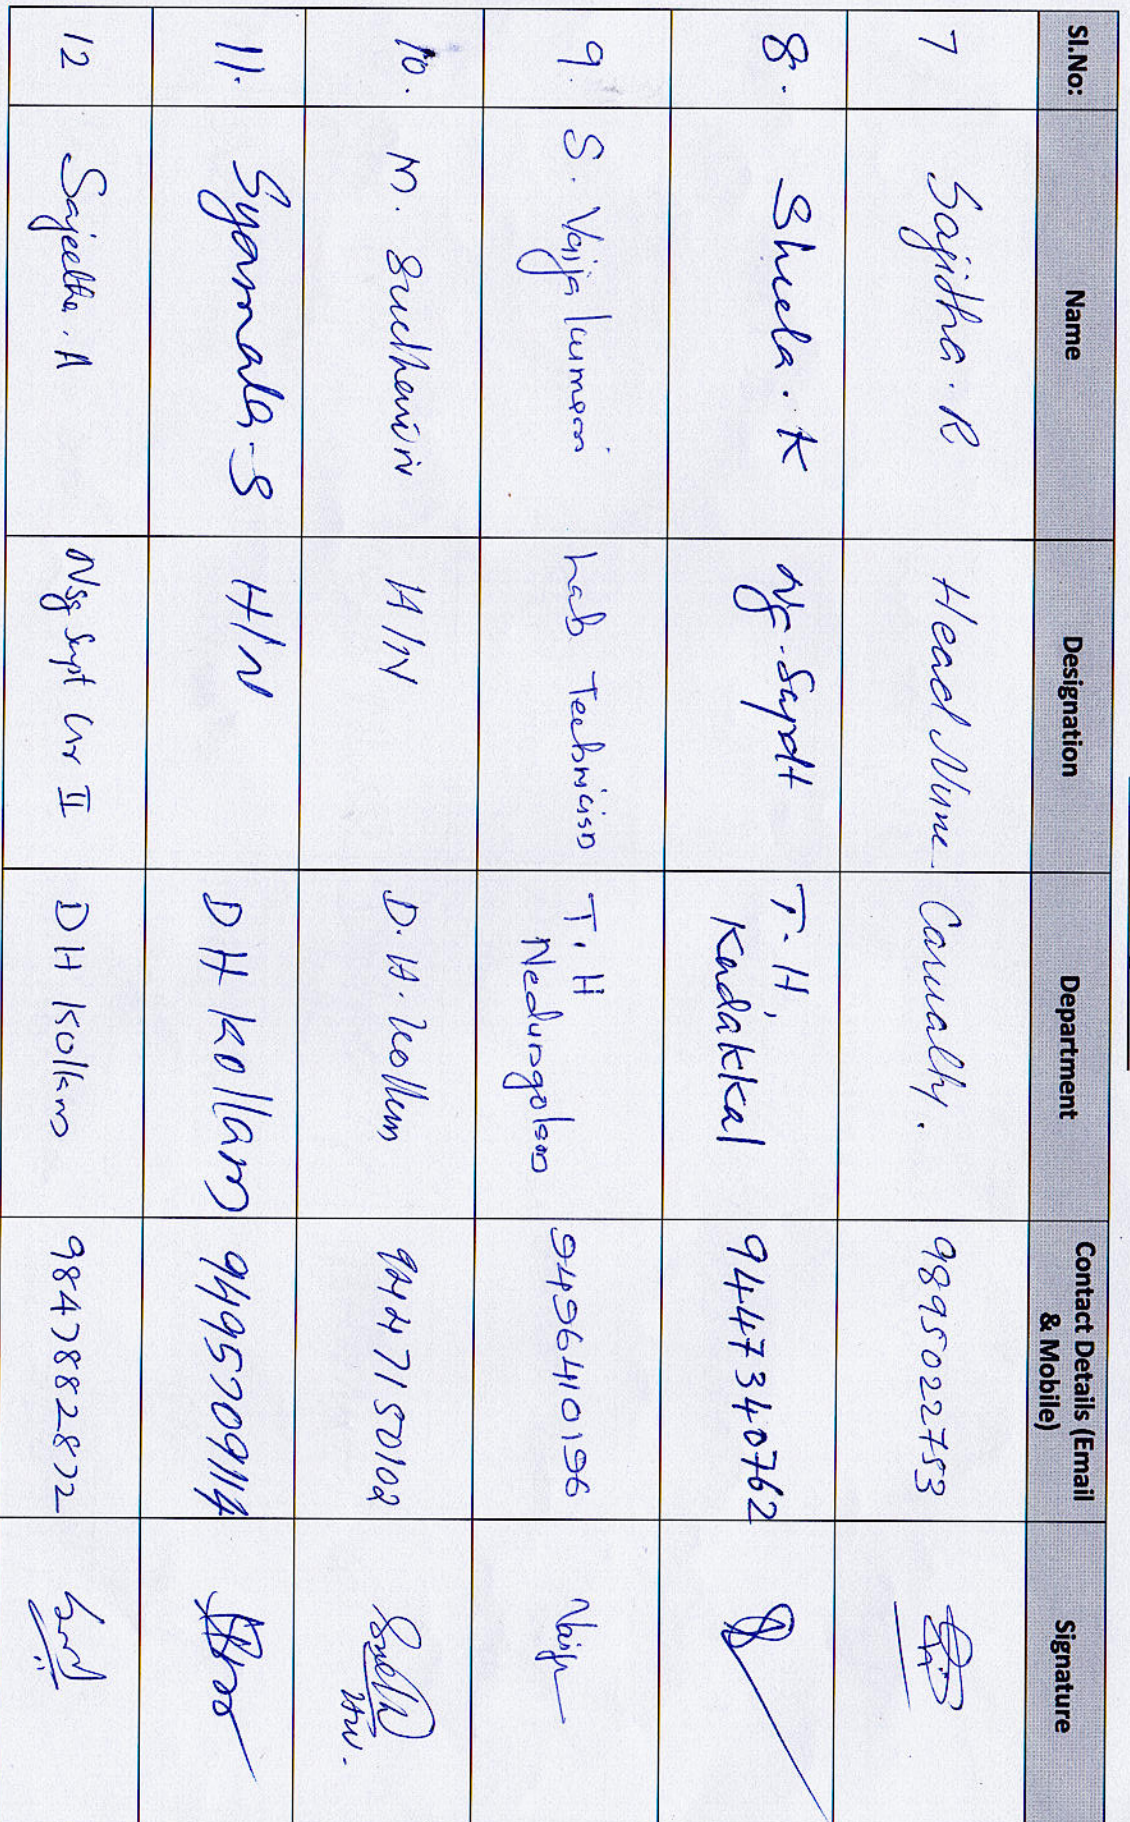 Sl.No: Name Designation Department Contact Details (Email
& Mobile) Signature
7 Sajidha. R Head Nurse Casualty. 9895022753
8. Sheela. K Ng-Supdt T.H, 9447340762
Kadakkal
9. S. Vaijakumari Lab Technician T.H 9496410196
Nedungolam
10. M. H/N D.H. Kollam 9447150102
11. Syamala-S H/N DH Kollam 9495209114
12 Sajeetha. A Nsg Supt Gr II DH Kollam 9847882872